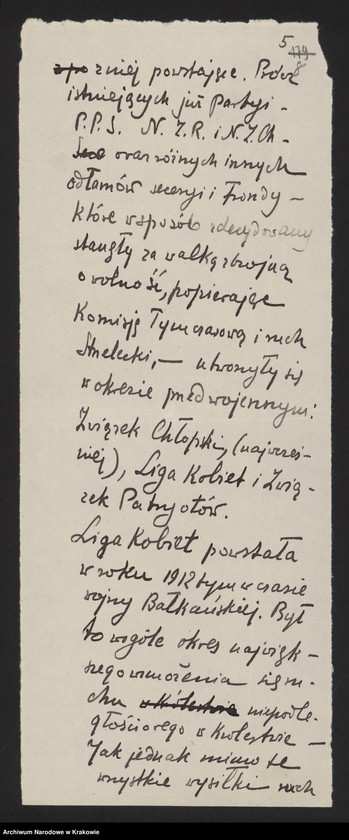 5
179
8
później powstające. Prócz
istniejących już Partyi -
P.P.S. N.Z.R. i N.Z.Ch -
oraz różnych innych
odłamów secesyi i Frondy -
które w sposób zdecydowany
stanęły za walką zbrojną
o wolność, popierając
Komisję Tymczasową i ruch
Strzelecki, — utworzyły się
w okresie przedwojennym:
Związek Chłopski, (najwcześ-
niej), Liga Kobiet i Zwią-
zek Patryotów.
Liga Kobiet powstała
w roku 1912tym w czasie
wojny Bałkańskiej. Był
to wogóle okres najwięk-
szego wzmożenia się ru-
chu w Królestwie niepodle-
głościowego w Królestwie —
Jak jednak mimo te
wszystkie wysiłki ruch
Archiwum Narodowe w Krakowie